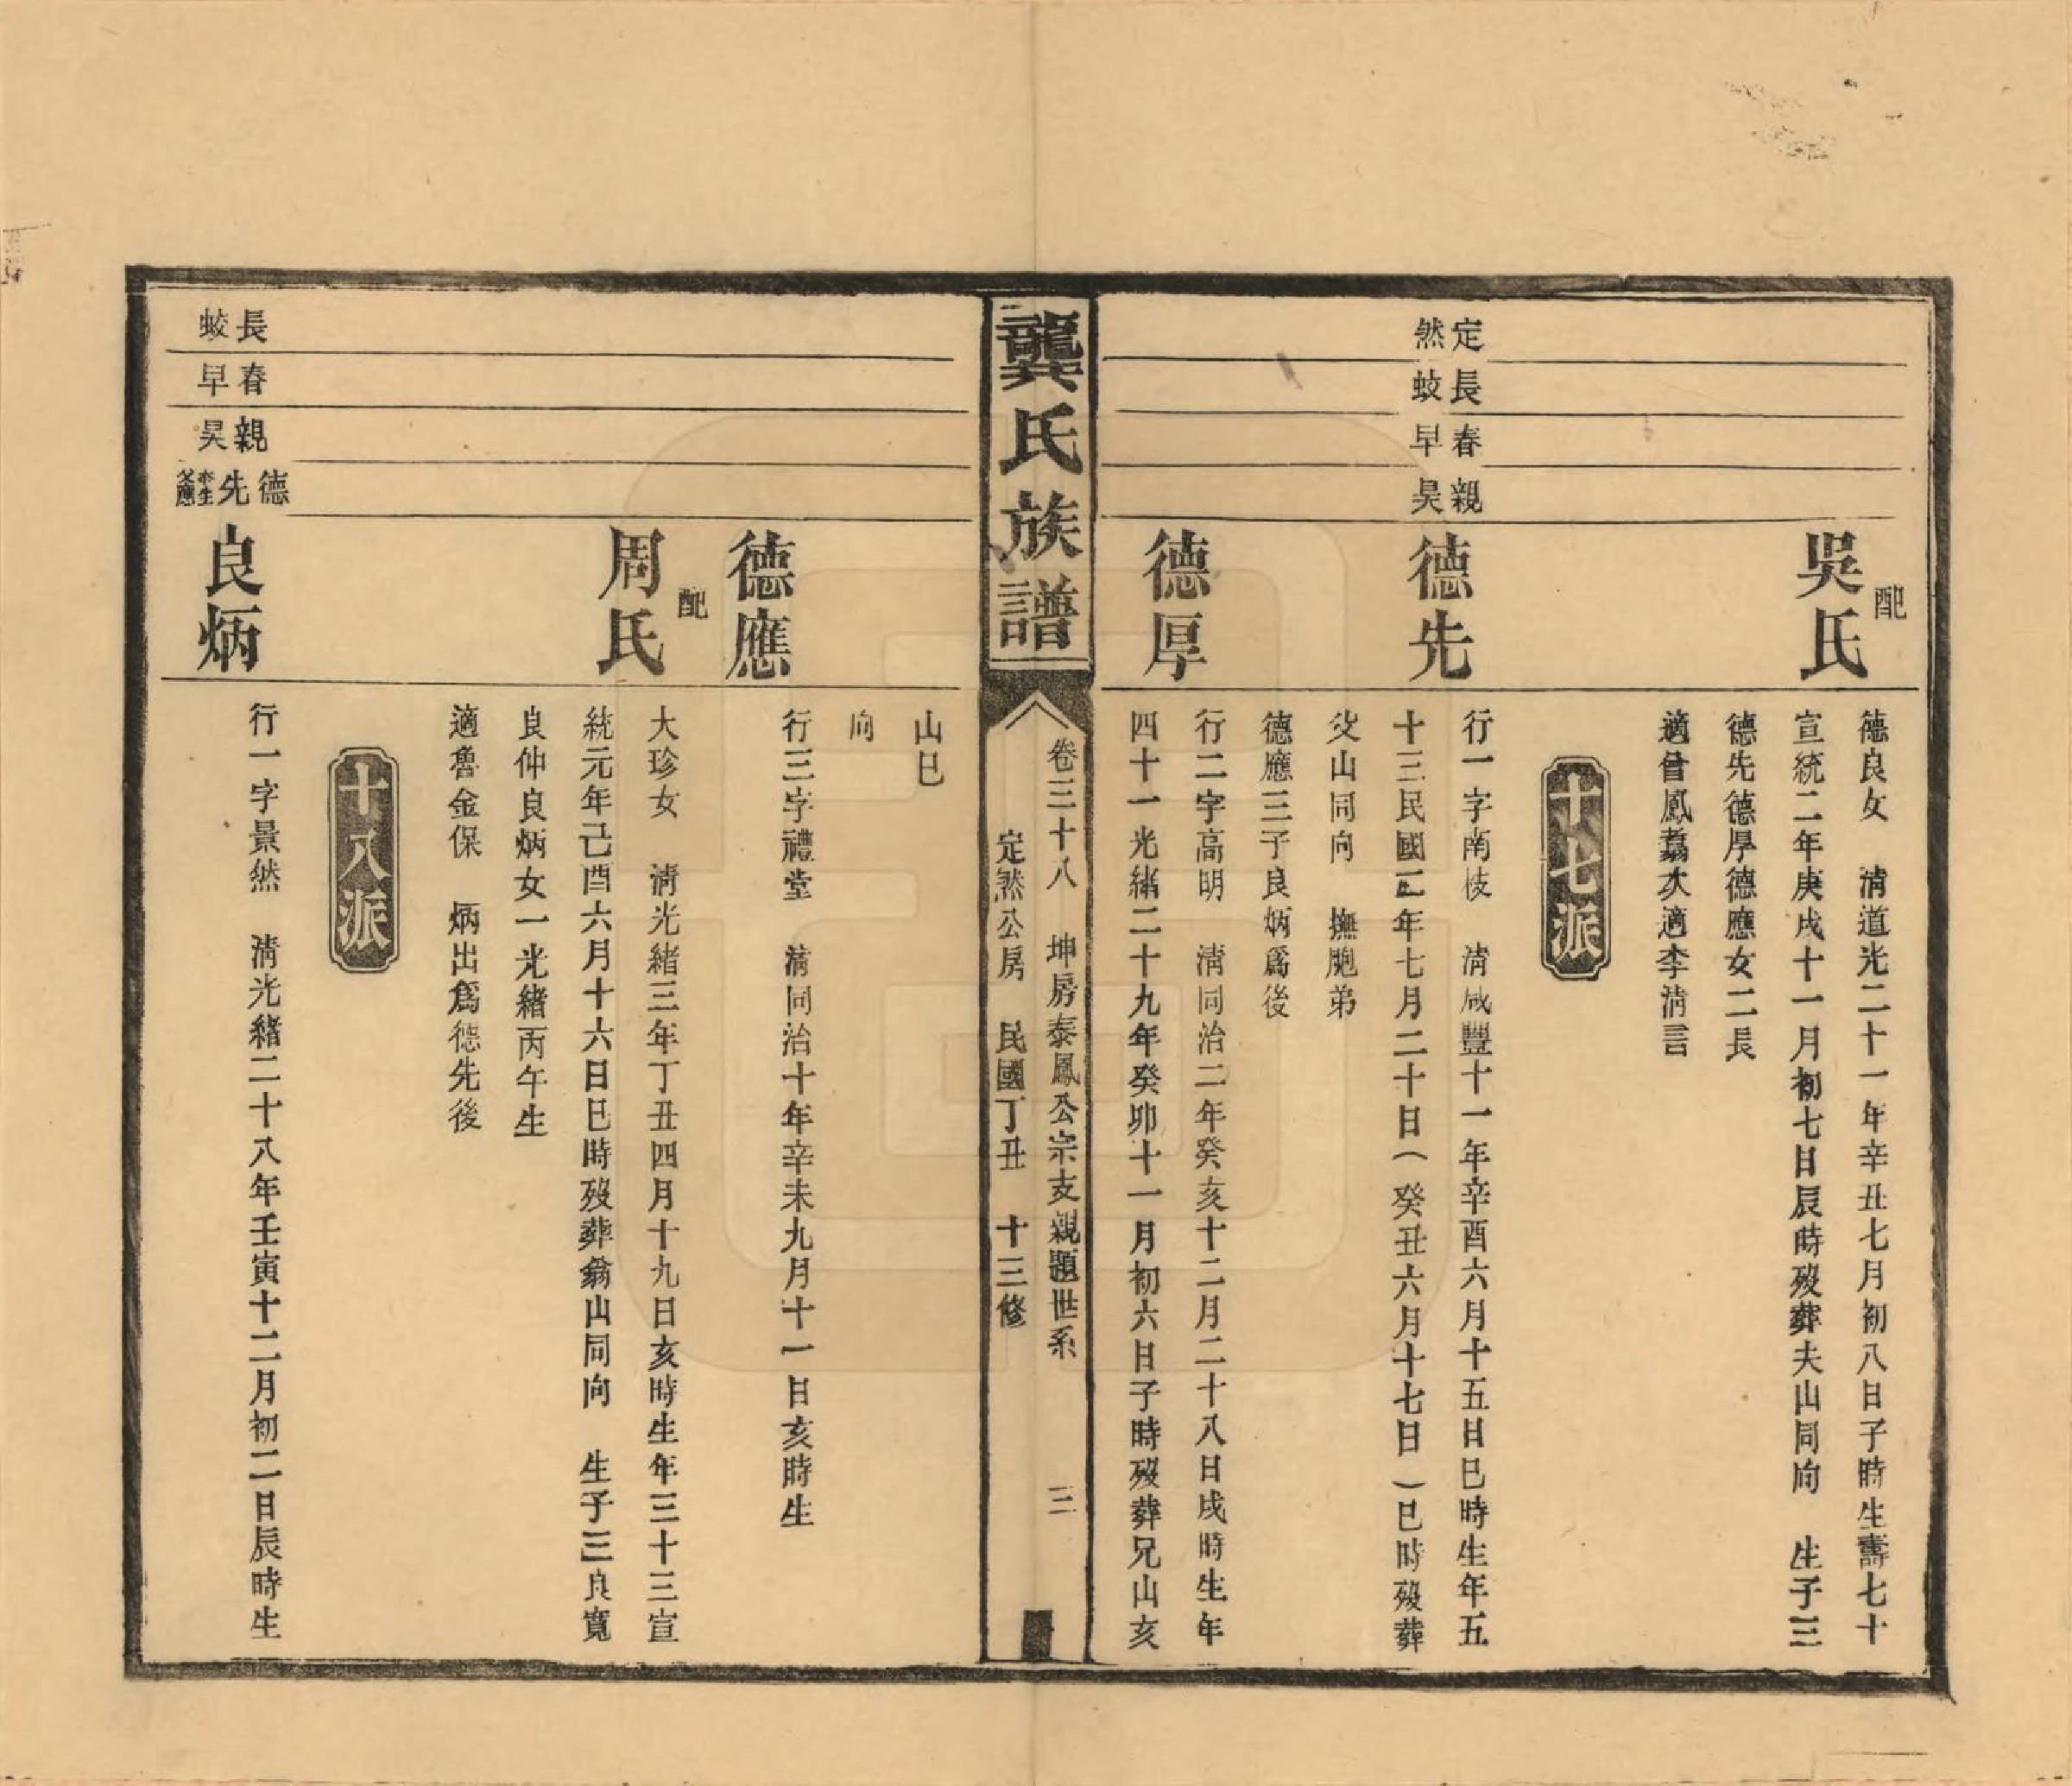 配
吳氏
德良女　清道光二十一年辛丑七月初八日子時生壽七十
宣統二年庚戌十一月初七日辰時歿葬夫山同向　生子三
德先德厚德應女二長
適曾鳳翥次適李清言
十七派
定然
長蛟
春早
親昊
德先
行一字南枝　清咸豐十一年辛酉六月十五日巳時生年五
十三民國二年七月二十日（癸丑六月十七日）巳時歿葬
父山同向　撫胞弟
德應三子良炳爲後
德厚
行二字高明　清同治二年癸亥十二月二十八日戌時生年
四十一光緒二十九年癸卯十一月初六日子時歿葬兄山亥
龔氏族譜
卷三十八　坤房泰鳳公宗支親題世系　三
定然公房　民國丁丑　十三修
山巳
向
德應
行三字禮堂　清同治十年辛未九月十一日亥時生
配
周氏
大珍女　清光緒三年丁丑四月十九日亥時生年三十三宣
統元年己酉六月十六日巳時歿葬翁山同向　生子三良寬
良仲良炳女一光緒丙午生
適魯金保　炳出爲德先後
十八派
長蛟
春早
親昊
德先
本生父應
良炳
行一字景然　清光緒二十八年壬寅十二月初二日辰時生